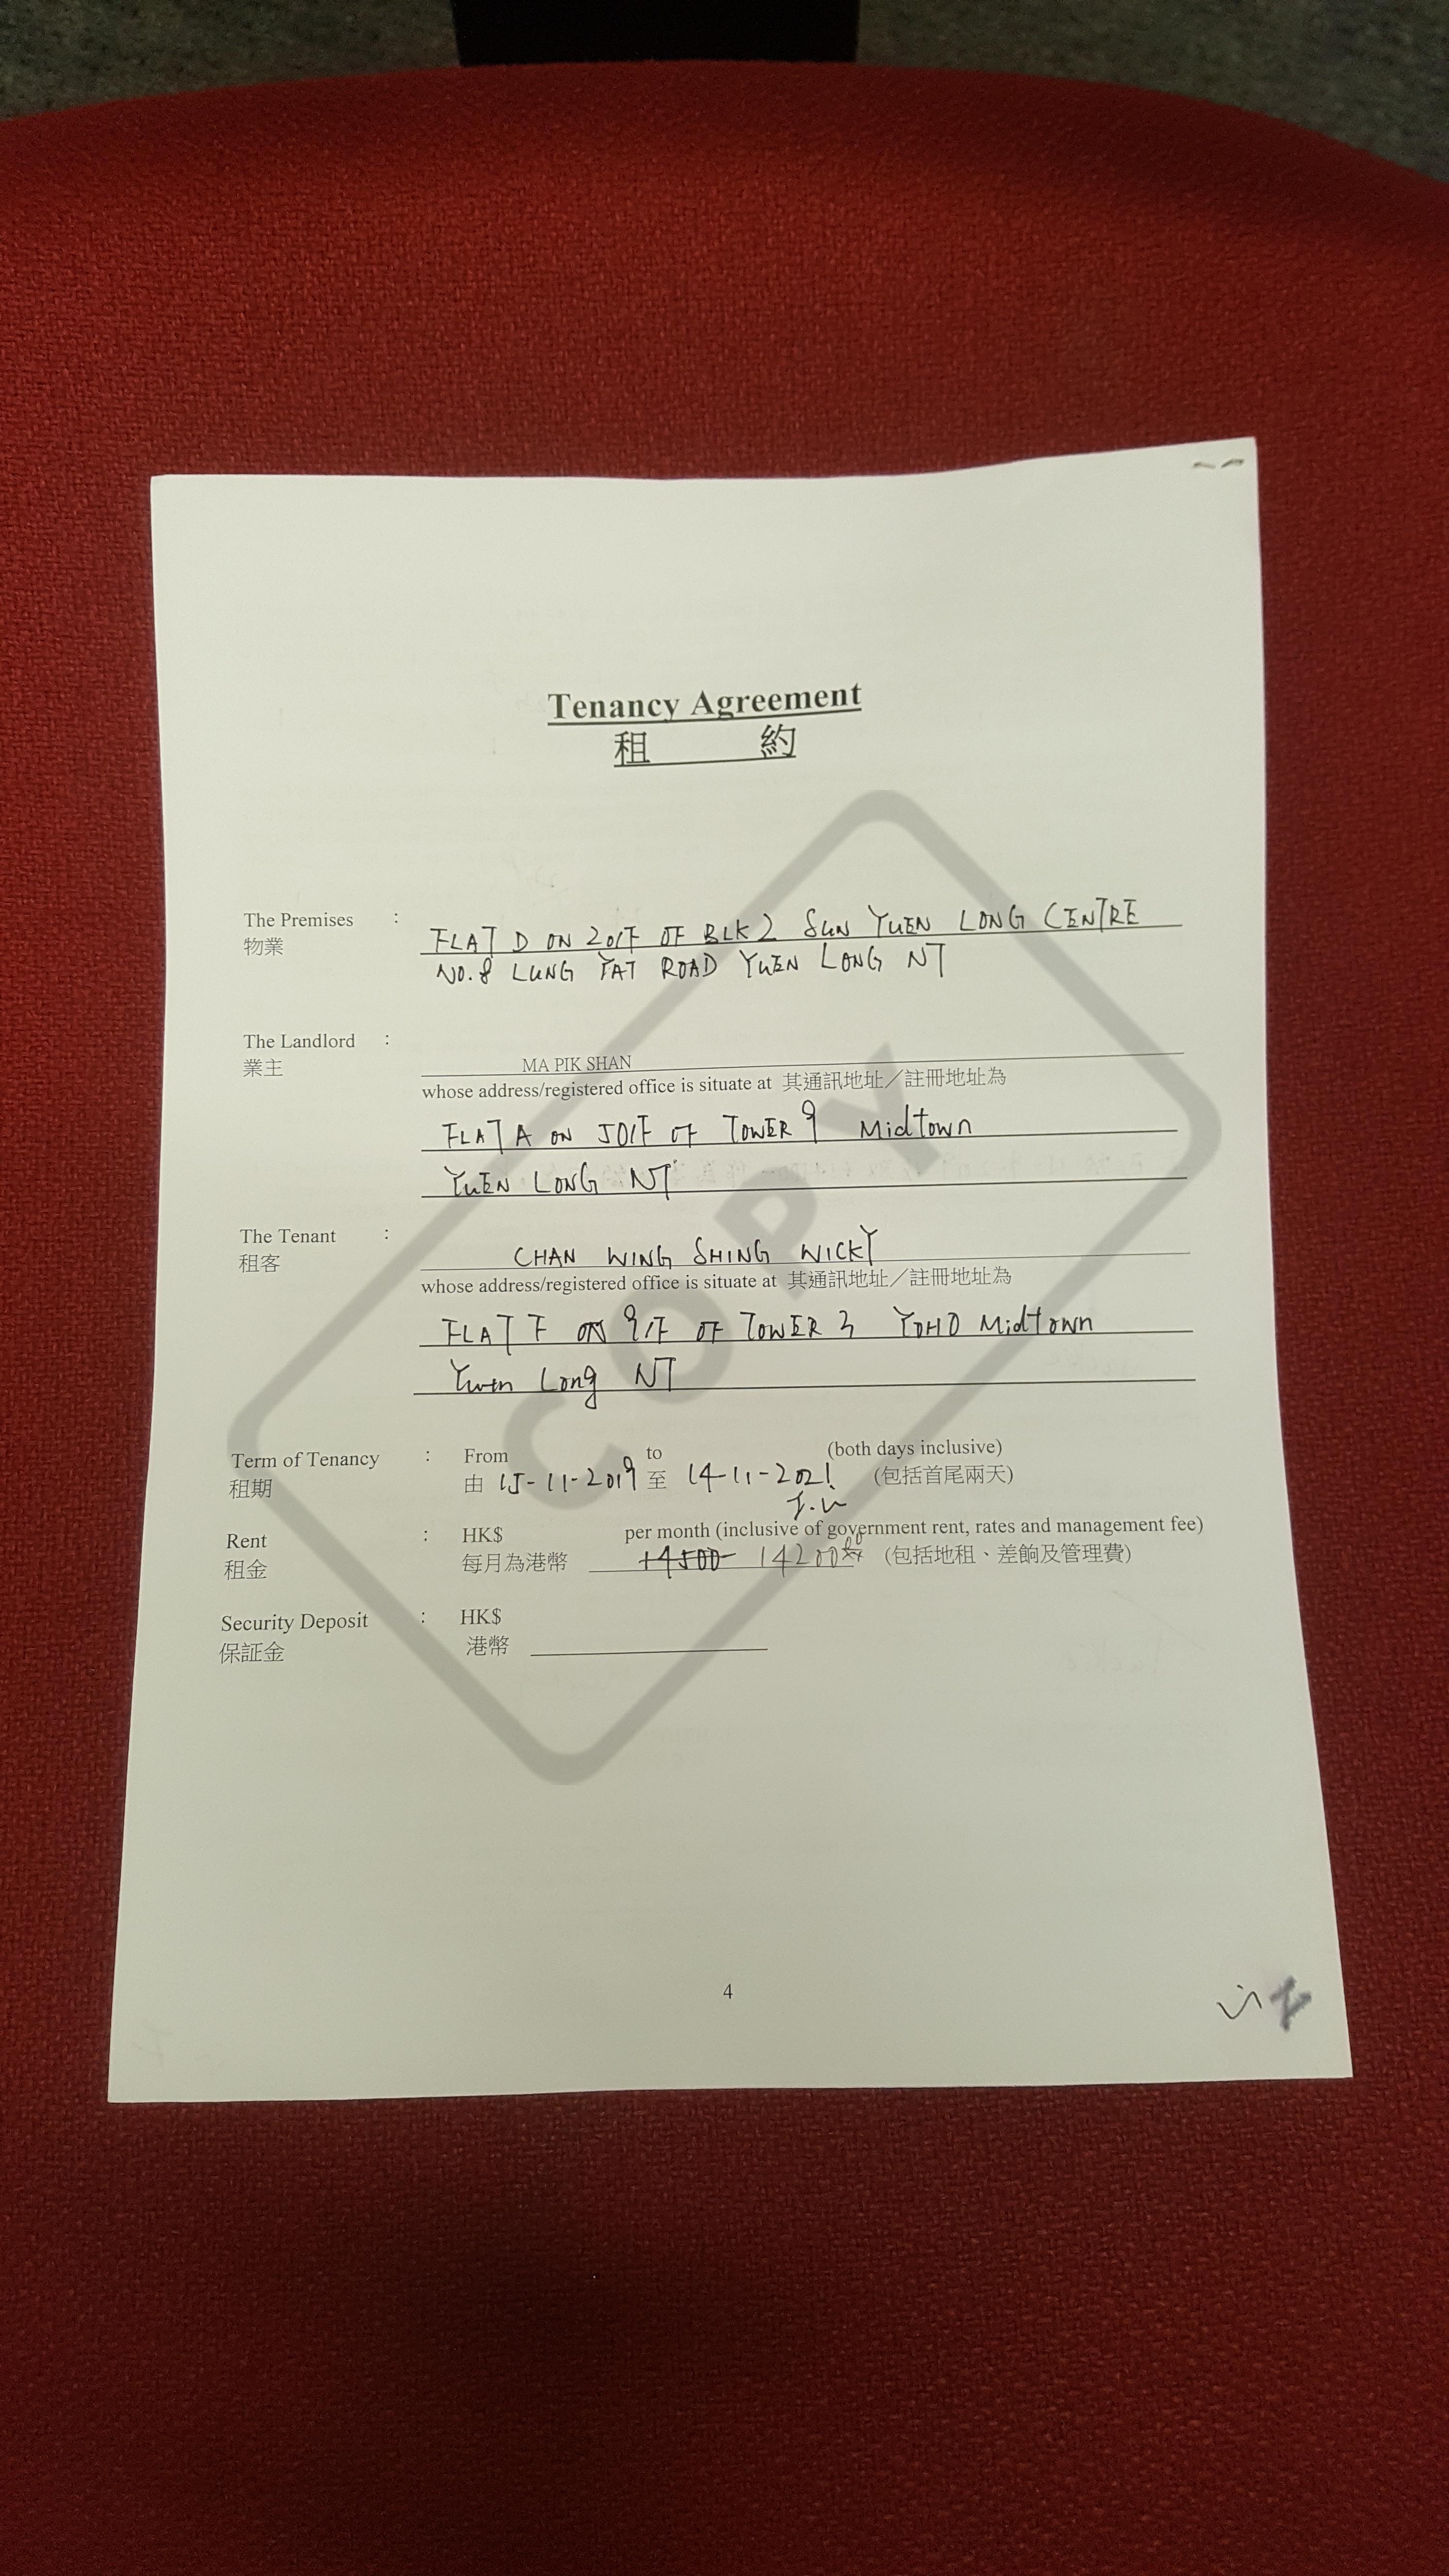 Tenancy Agreement
租 約
The Premises :
物業
FLAT D ON 20/F OF BLK 2 SUN YUEN LONG CENTRE
NO.8 LUNG YAT ROAD YUEN LONG NT
The Landlord :
業主
MA PIK SHAN
whose address/registered office is situate at 其通訊地址／註冊地址為
FLAT A ON 30/F OF TOWER 9 Midtown
YUEN LONG NT
The Tenant :
租客
CHAN WING SHING WICKY
whose address/registered office is situate at 其通訊地址／註冊地址為
FLAT F ON 9/F OF TOWER 3 YOHO Midtown
Yuen Long NT
Term of Tenancy : From to (both days inclusive)
租期 由 15-11-2019 至 14-11-2021 (包括首尾兩天)
Rent : HK$ per month (inclusive of government rent, rates and management fee)
租金 每月為港幣 14500 14200 (包括地租、差餉及管理費)
Security Deposit : HK$
保証金 港幣
COPY
4